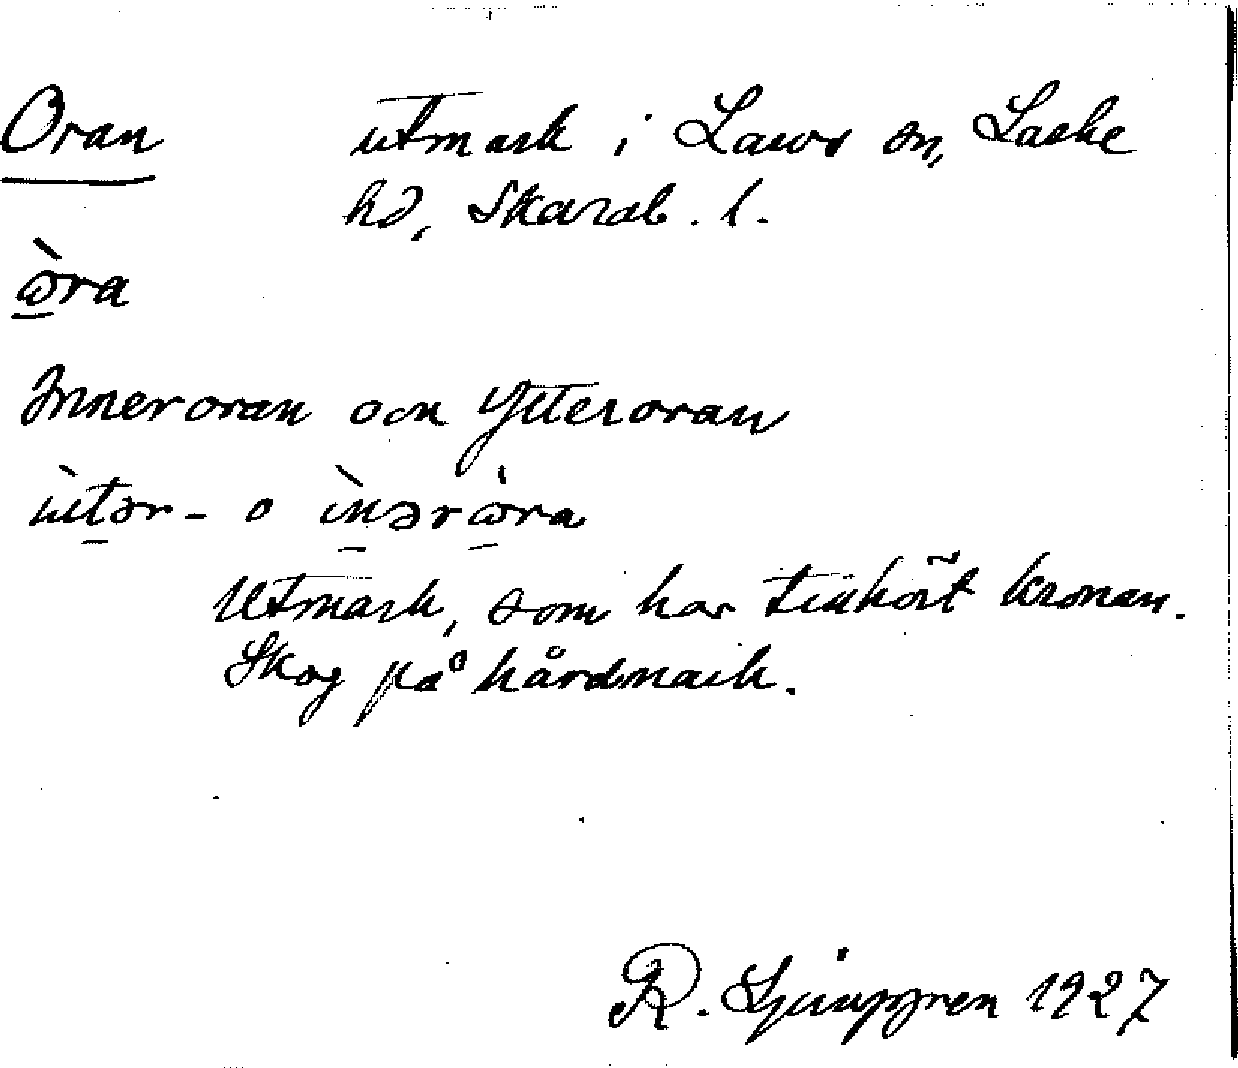 Oran utmark i Lavads sn, Laske
hd, Skarab. l.
ꞷ̀ra
Inneroran och Ytteroran
ùtər- o ìnərꞷ̀ra
Utmark, som har tillhört kronan.
Skog på hårdmark.
R. Ljunggren 1927